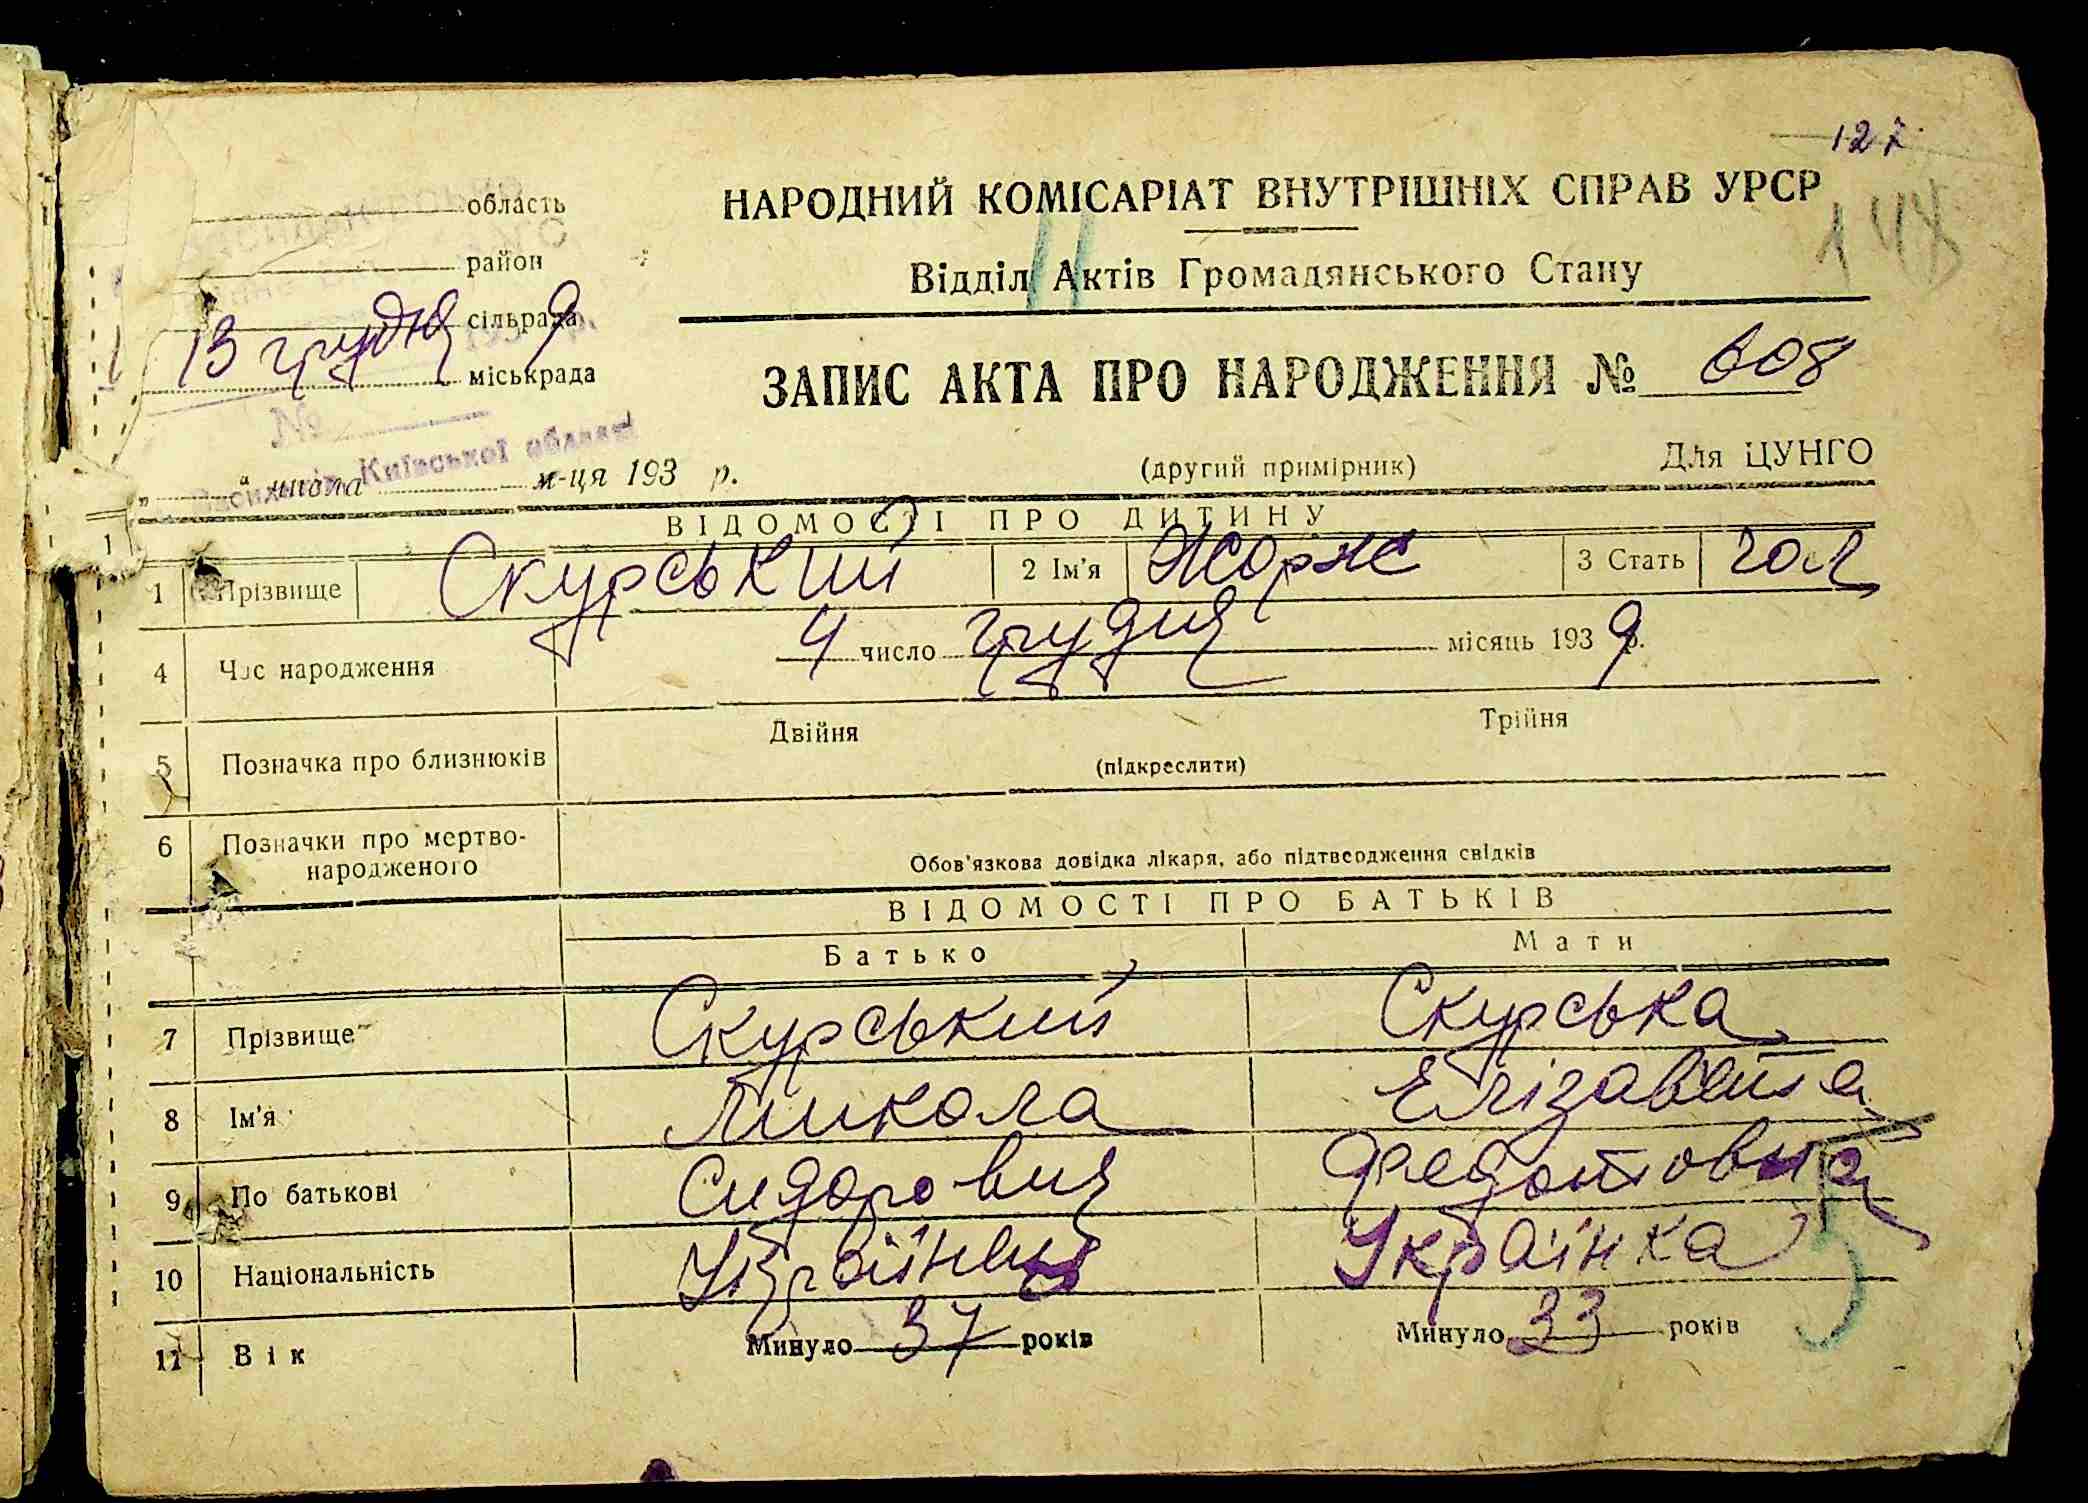 127
148
область
район
сільрада
міськрада
13 грудня 9
№
Київської області
числа м-ця 193 р.
НАРОДНИЙ КОМІСАРІАТ ВНУТРІШНІХ СПРАВ УРСР
Відділ Актів Громадянського Стану
ЗАПИС АКТА ПРО НАРОДЖЕННЯ № 608
(другий примірник) Для ЦУНГО
ВІДОМОСТІ ПРО ДИТИНУ
1 Прізвище Скурський 2 Ім'я Жорж 3 Стать чол
4 Час народження 4 число грудня місяць 1939 р.
5 Позначка про близнюків Двійня Трійня
(підкреслити)
6 Позначки про мертво-
народженого
Обов'язкова довідка лікаря, або підтвердження свідків
ВІДОМОСТІ ПРО БАТЬКІВ
Батько Мати
7 Прізвище Скурський Скурська
8 Ім'я Микола Елізавета
9 По батькові Сидорович Федотовна
10 Національність Українець Українка
11 Вік Минуло 37 років Минуло 33 років